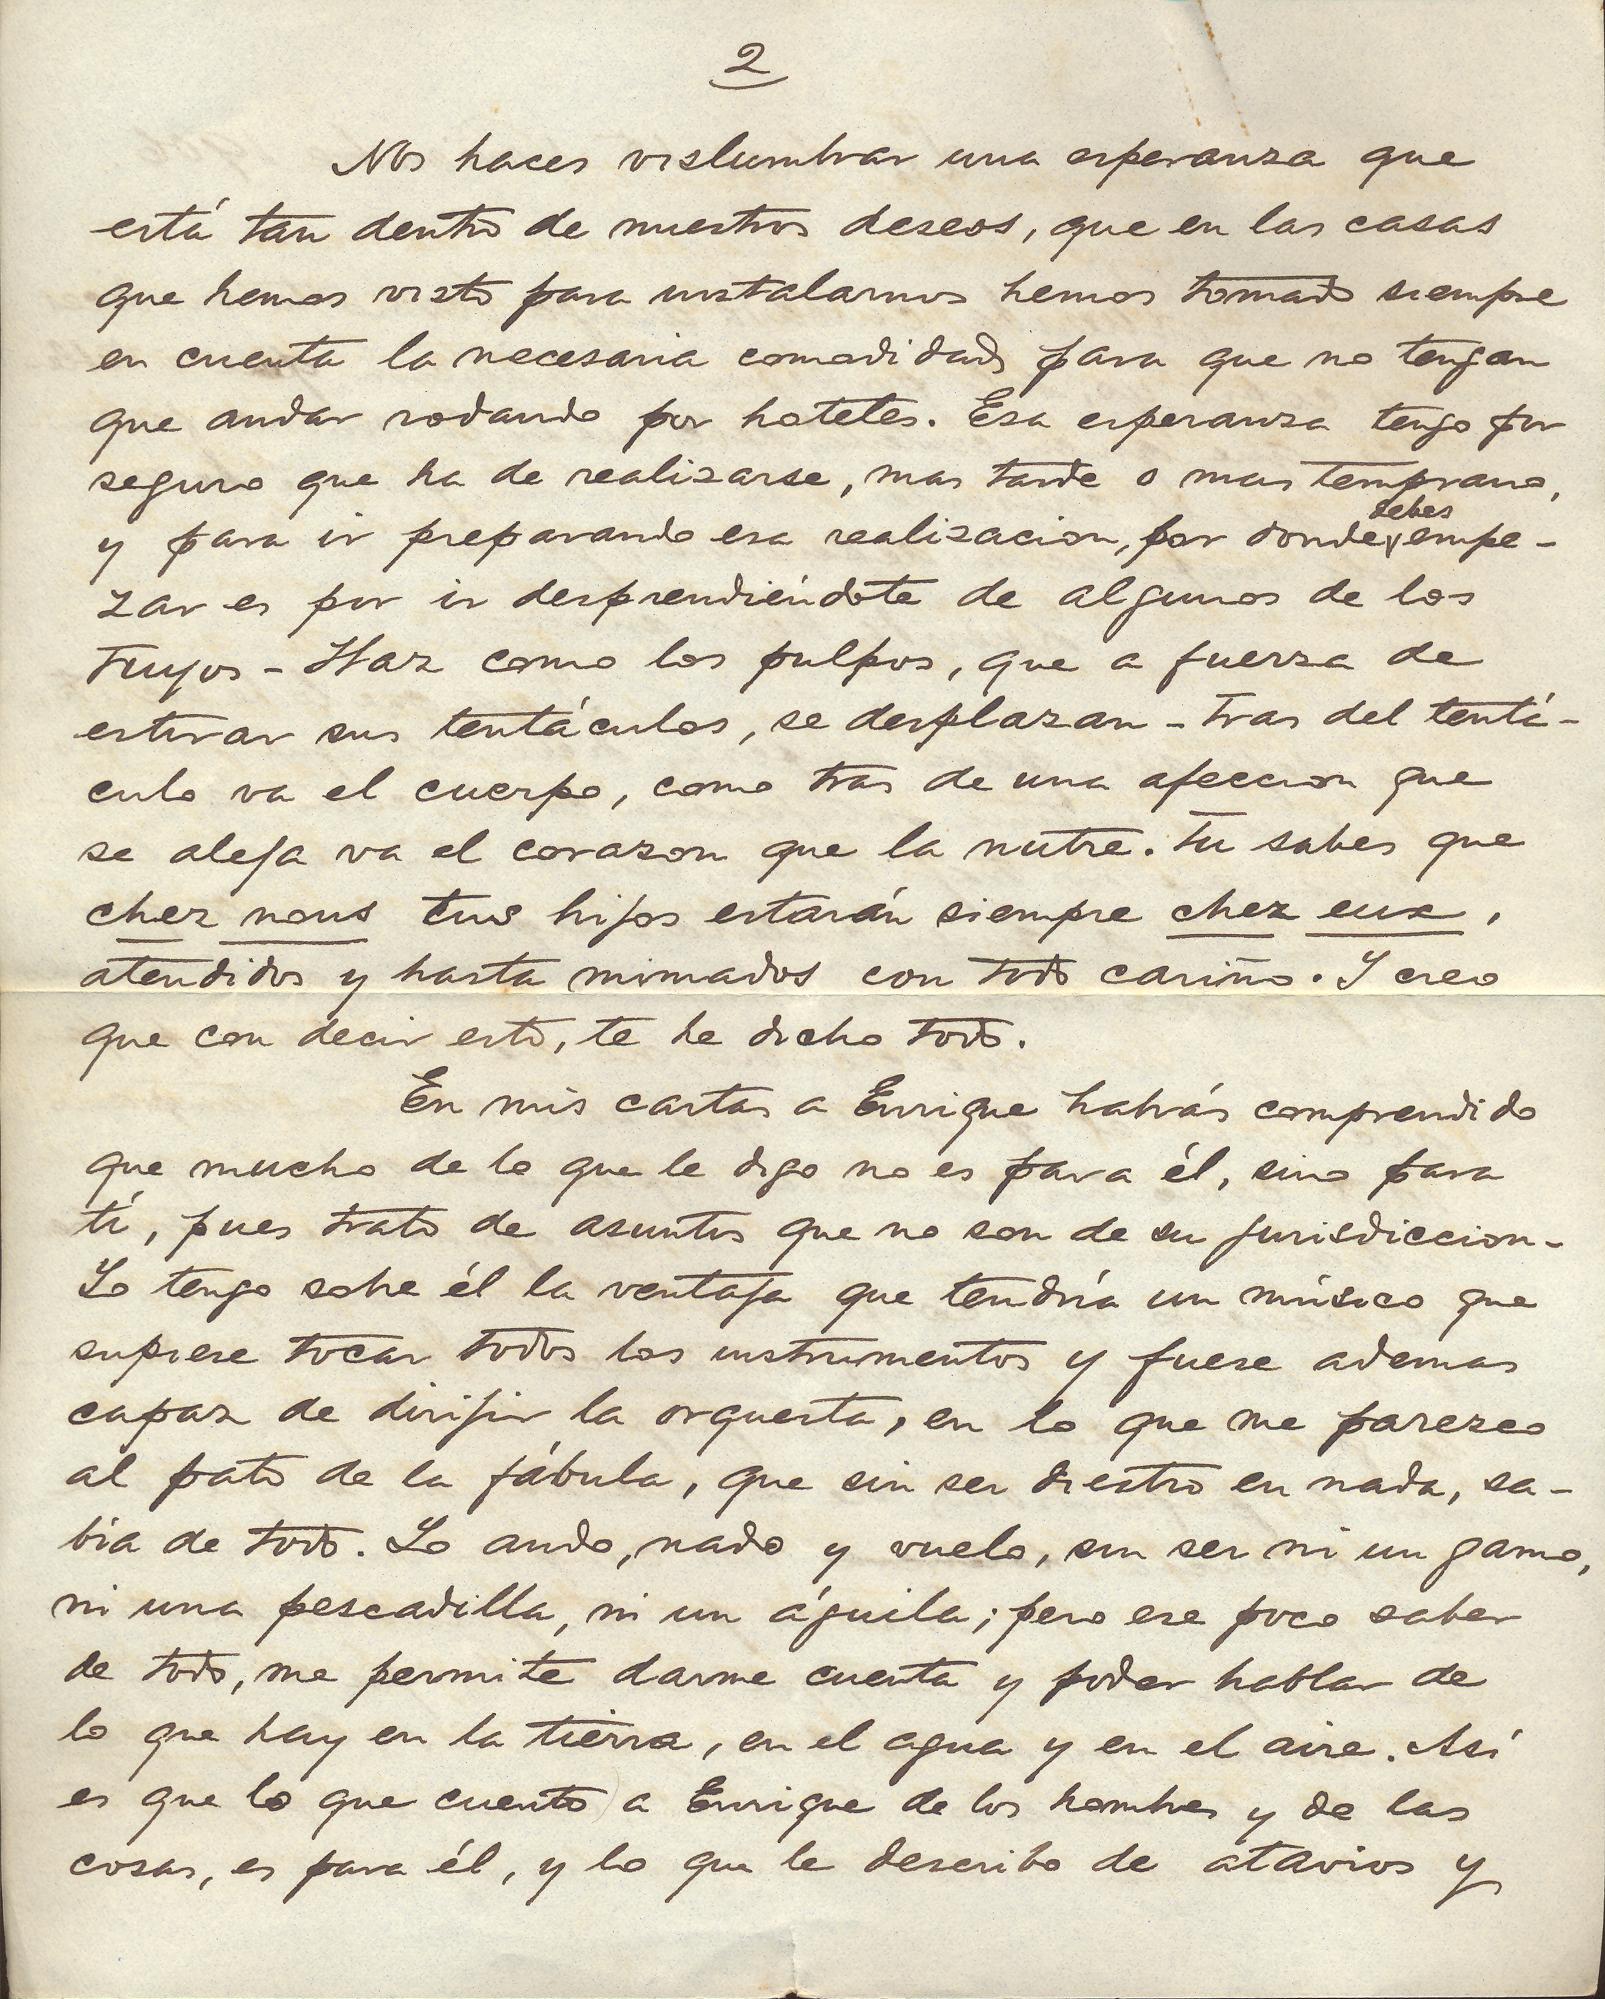 2
Nos haces vislumbrar una esperanza que
está tan dentro de nuestros deseos, que en las casas
que hemos visto para instalarnos hemos tomado siempre
en cuenta la necesaria comodidad para que no tengan
que andar rodando por hoteles. Esa esperanza tengo por
seguro que ha de realizarse, mas tarde o mas temprano,
y para ir preparando esa realizacion, por donde debes empe-
zar es por ir desprendiéndote de algunos de los
tuyos - Haz como los pulpos, que a fuerza de
estirar sus tentáculos, se desplazan - Tras del tentá-
culo va el cuerpo, como tras de una afeccion que
se aleja va el corazon que la nutre. Tu sabes que
chez nous tus hijos estarán siempre chez eux,
atendidos y hasta mimados con todo cariño. Y creo
que con decir esto, te he dicho todo.
En mis cartas a Enrique habrás comprendido
que mucho de lo que le digo no es para él, sino para
tí, pues trato de asuntos que no son de su jurisdiccion -
Yo tengo sobre él la ventaja que tendría un músico que
supiese tocar todos los instrumentos y fuese ademas
capaz de dirijir la orquesta, en lo que me parezco
al pato de la fábula, que sin ser diestro en nada, sa-
bia de todo. Yo ando, nado y vuelo, sin ser ni un gamo,
ni una pescadilla, ni un águila; pero ese poco saber
de todo, me permite darme cuenta y poder hablar de
lo que hay en la tierra, en el agua y en el aire. Así
es que lo que cuento a Enrique de los hombres y de las
cosas, es para él, y lo que le describo de atavios y